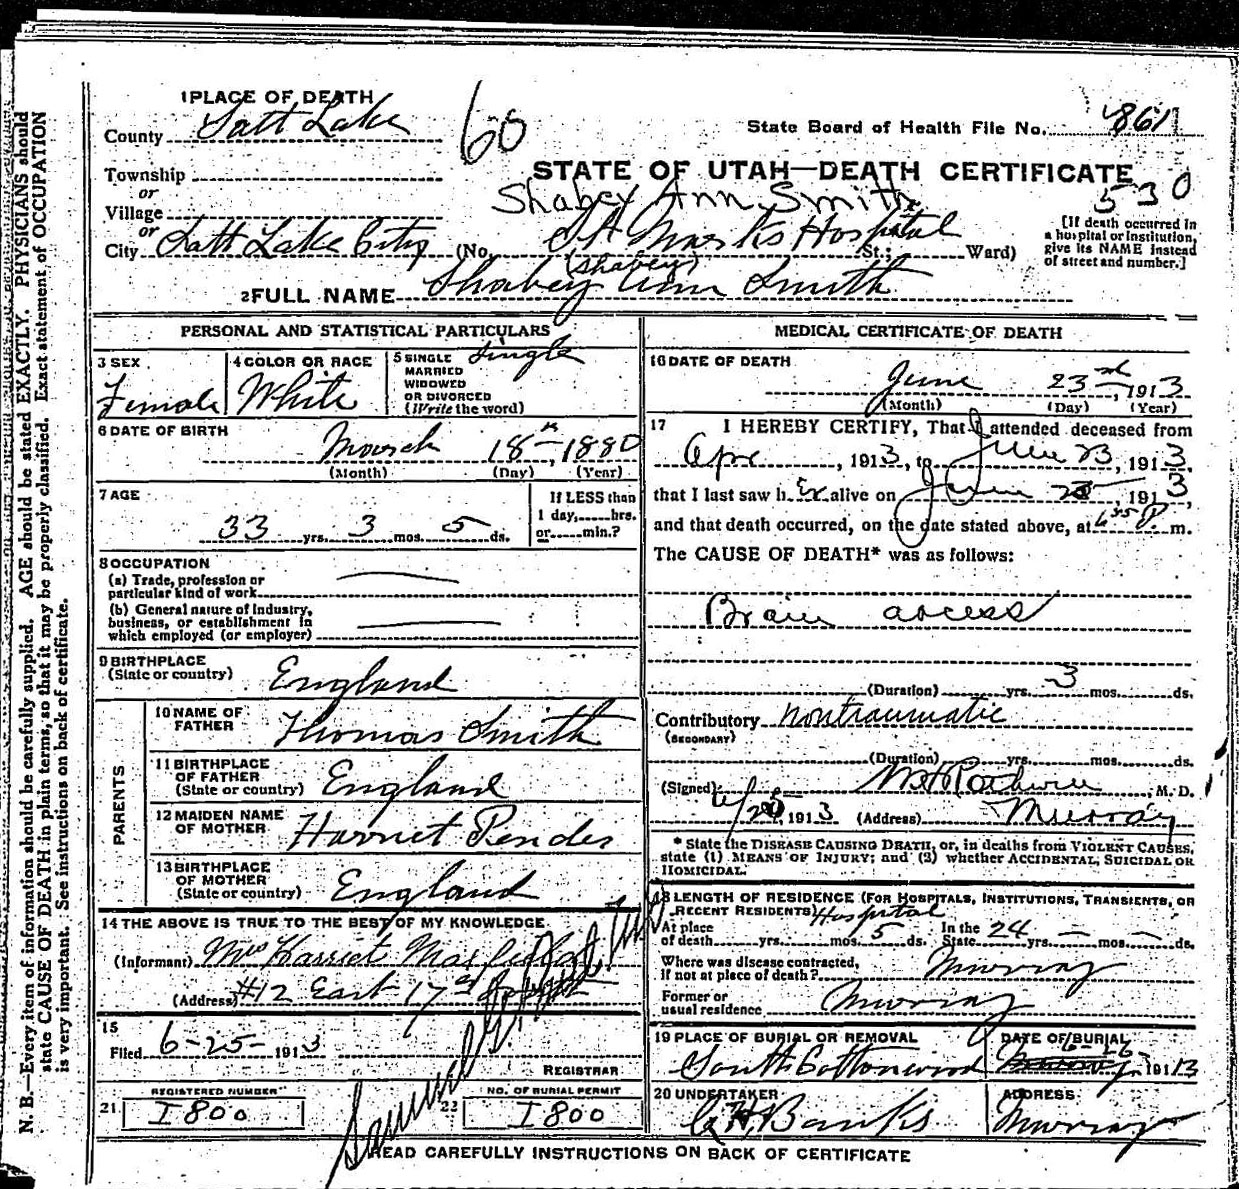 1 PLACE OF DEATH
County Salt Lake
60
State Board of Health File No. 861
Township
or
STATE OF UTAH—DEATH CERTIFICATE
530
Village
or
Shabey Ann Smith
City Salt Lake City (No. St Marks Hospital St.; Ward)
[If death occurred in
a hospital or institution,
give its NAME instead
of street and number.]
(Shabey)
2 FULL NAME Shabey Ann Smith
PERSONAL AND STATISTICAL PARTICULARS
3 SEX
Female
4 COLOR OR RACE
White
5 SINGLE
MARRIED
WIDOWED
OR DIVORCED
(Write the word)
Single
6 DATE OF BIRTH
March 18th, 1880
(Month) (Day) (Year)
7 AGE
33 yrs. 3 mos. 5 ds.
If LESS than
1 day, hrs.
or min.?
8 OCCUPATION
(a) Trade, profession or
particular kind of work
(b) General nature of industry,
business, or establishment in
which employed (or employer)
9 BIRTHPLACE
(State or country) England
PARENTS
10 NAME OF
FATHER Thomas Smith
11 BIRTHPLACE
OF FATHER
(State or country) England
12 MAIDEN NAME
OF MOTHER Harriet Pender
13 BIRTHPLACE
OF MOTHER
(State or country) England
14 THE ABOVE IS TRUE TO THE BEST OF MY KNOWLEDGE
(Informant) Mrs Harriet
(Address) #12 East 17th
15
Filed 6-25- 1913
REGISTRAR
Samuel G.
REGISTERED NUMBER
21 I800
NO. OF BURIAL PERMIT
22 I800
MEDICAL CERTIFICATE OF DEATH
16 DATE OF DEATH
June 23rd, 1913
(Month) (Day) (Year)
17 I HEREBY CERTIFY, That I attended deceased from
Apr , 1913, to June 23, 1913,
that I last saw her alive on June 1913,
and that death occurred, on the date stated above, at 6 35 P. m.
The CAUSE OF DEATH* was as follows:
Brain abscess
(Duration) yrs. 3 mos. ds.
Contributory nontraumatic
(SECONDARY)
(Duration) yrs. mos. ds.
(Signed) M. D.
6/25, 1913 (Address) Murray
* State the DISEASE CAUSING DEATH, or, in deaths from VIOLENT CAUSES,
state (1) MEANS OF INJURY; and (2) whether ACCIDENTAL, SUICIDAL OR
HOMICIDAL.
18 LENGTH OF RESIDENCE (FOR HOSPITALS, INSTITUTIONS, TRANSIENTS, OR
RECENT RESIDENTS) Hospital
At place
of death yrs. mos. 5 ds. In the
State 24 yrs. — mos. — ds.
Where was disease contracted,
if not at place of death? Murray
Former or
usual residence Murray
19 PLACE OF BURIAL OR REMOVAL
South Cottonwood
DATE OF BURIAL
6-26 1913
20 UNDERTAKER
Banks
ADDRESS
Murray
READ CAREFULLY INSTRUCTIONS ON BACK OF CERTIFICATE
N. B.—Every item of information should be carefully supplied. AGE should be stated EXACTLY. PHYSICIANS should
state CAUSE OF DEATH in plain terms, so that it may be properly classified. Exact statement of OCCUPATION
is very important. See instructions on back of certificate.